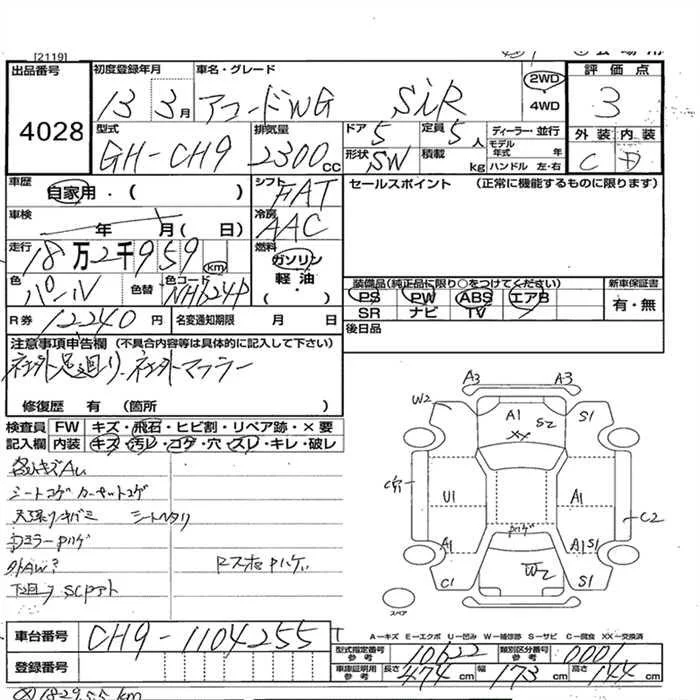 [2119]
出品番号 4028
初度登録年月 13 3月
車名・グレード アコードWG SiR
2WD 4WD
評価点 3
外装 C 内装 D
型式 GH-CH9
排気量 2300cc
ドア 5 定員 5人
形状 SW 積載 kg
ディーラー・並行
モデル年式 年
ハンドル 左・右
車歴 自家用・( )
シフト FAT
セールスポイント (正常に機能するものに限ります)
車検 年 月( 日)
冷房 AAC
走行 18万2千959 km
燃料 ガソリン 軽油・( )
色 パール 色替 色コード NH624P
装備品(純正品に限り○をつけてください)
PS PW ABS エアB
SR ナビ TV
新車保証書 有・無
R券 12240円 名変通知期限 月 日
後日品
注意事項申告欄 (不具合内容等は具体的に記入して下さい)
社外足廻り、社外マフラー
修復歴 有 (箇所 )
検査員記入欄
FW キズ・飛石・ヒビ割・リペア跡・×要
内装 キズ・汚レ・コゲ・穴・スレ・キレ・破レ
シートコゲ カーペットコゲ
シートヘタリ
ミラーPハゲ
外AW?
下廻り SCPアト
A3 A3
W2 A1 S2 S1
XX
U1 A1
C2
Pハゲ
A1 A1 S1
C1 W2 S1
スペア
車台番号 CH9-1104255
A−キズ E−エクボ U−凹み W−補修跡 S−サビ C−腐食 XX−交換済
登録番号
型式指定番号 参考 10622 類別区分番号 参考 0001
車庫証明用 参考 長さ 474cm 幅 173cm 高さ 144cm
182955 km